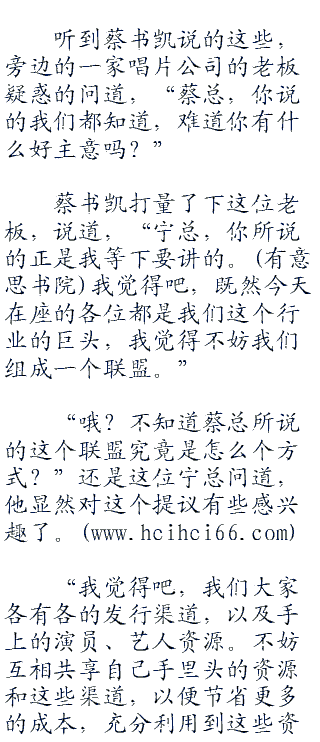 听到蔡书凯说的这些，
旁边的一家唱片公司的老板
疑惑的问道，“蔡总，你说
的我们都知道，难道你有什
么好主意吗？”
蔡书凯打量了下这位老
板，说道，“宁总，你所说
的正是我等下要讲的。(有意
思书院)我觉得吧，既然今天
在座的各位都是我们这个行
业的巨头，我觉得不妨我们
组成一个联盟。”
“哦？不知道蔡总所说
的这个联盟究竟是怎么个方
式？”还是这位宁总问道，
他显然对这个提议有些感兴
趣了。(www.hcihci66.com)
“我觉得吧，我们大家
各有各的发行渠道，以及手
上的演员、艺人资源。不妨
互相共享自己手里头的资源
和这些渠道，以便节省更多
的成本，充分利用到这些资